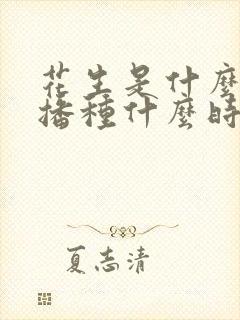 花生是什麼
播種什麼時
夏志清